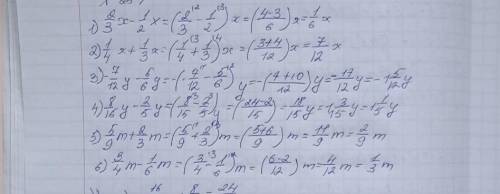 1) 2/3 x - 1/2 x = (2/3 ^2 - 1/2 ^3) x = (4-3/6) x = 1/6 x
2) 1/4 x + 1/3 x = (1/4 ^3 + 1/3 ^4) x = (3+4/12) x = 7/12 x
3) -7/12 y - 5/6 y = -(-7/12 - 5/6 ^2) y = -(7+10/12) y = -17/12 y = -1 5/12 y
4) 8/15 y - 2/5 y = (8/15 - 2/5 ^3) y = (24-2/15) = 18/15 y = 1 3/15 y = 1 1/5 y
5) 5/9 m + 2/3 m = (5/9 + 2/3 ^3) m = (5+6/9) m = 11/9 m = 2/9 m
6) 3/4 m - 1/6 m = (3/4 ^3 - 1/6) m = (6-2/12) m = 4/12 m = 1/3 m